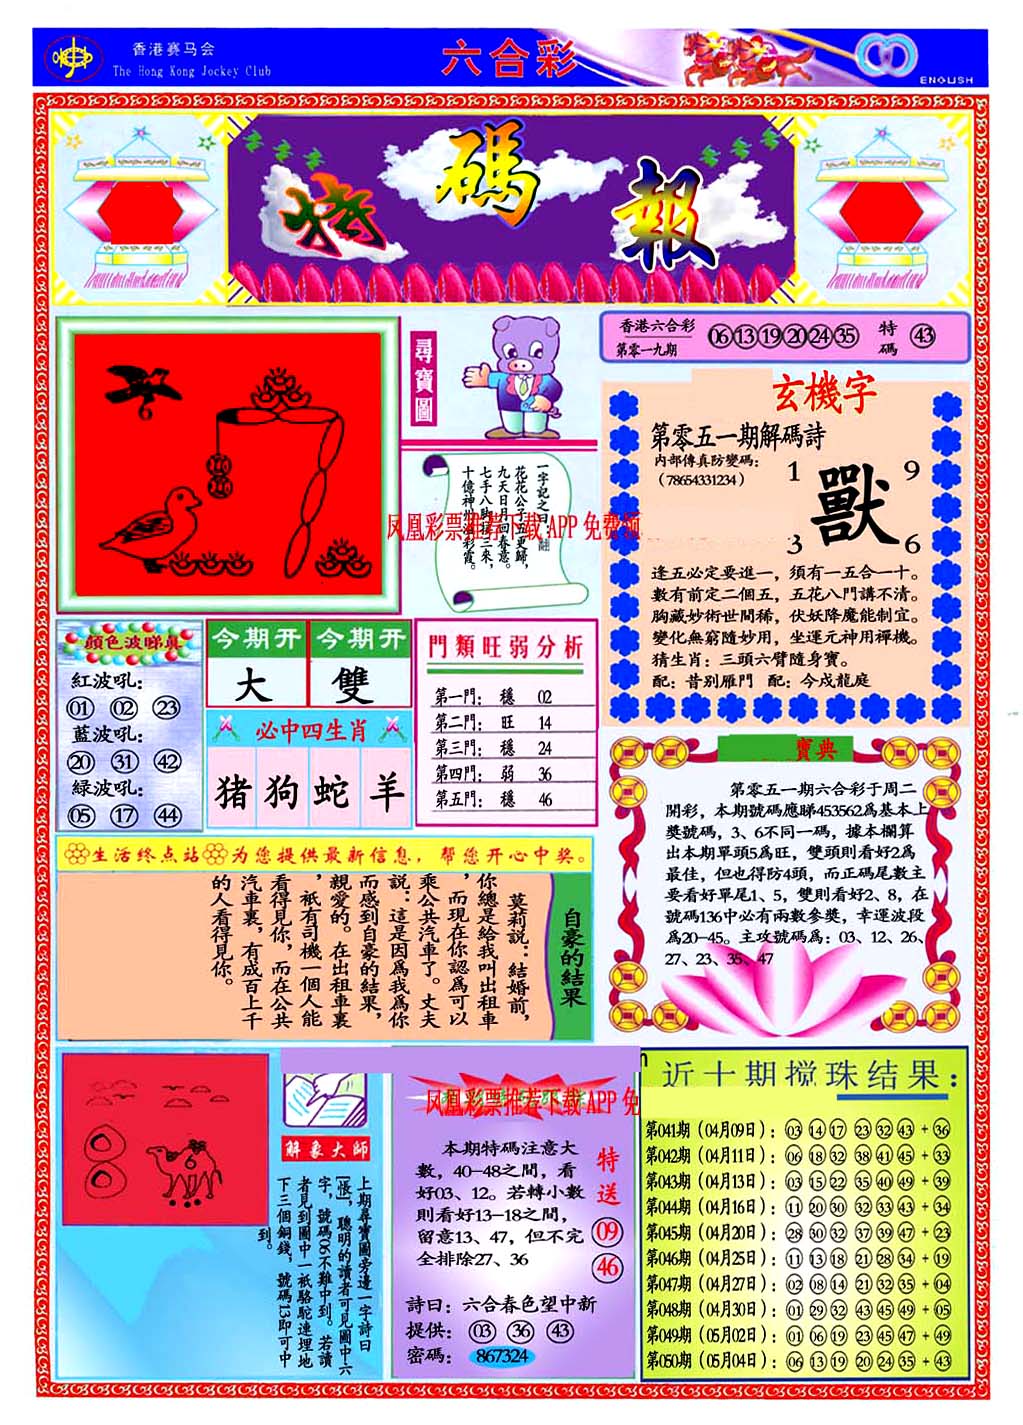 香港赛马会
The Hong Kong Jockey Club
六合彩
ENGLISH
特碼報
尋寶圖
香港六合彩
第零一九期
06 13 19 20 24 35
特碼
43
6
一字記之曰：翻
花花公子五更歸，
九天日月回春意。
七手八脚擋三來，
十億神州浴彩霞。
凤凰彩票推荐下载 APP 免费领
玄機字
第零五一期解碼詩
内部傳真防變碼：
（78654331234）
1 9
獸
3 6
逢五必定要進一，須有一五合一十。
數有前定二個五，五花八門講不清。
胸藏妙術世間稀，伏妖降魔能制宜。
變化無窮隨妙用，坐運元神用禪機。
猜生肖：三頭六臂隨身寶。
配：昔别雁門 配：今戍龍庭
顔色波睇真
紅波吼：
01 02 23
藍波吼：
20 31 42
緑波吼：
05 17 44
今期開 今期開
大 雙
必中四生肖
猪 狗 蛇 羊
門類旺弱分析
第一門： 穩 02
第二門： 旺 14
第三門： 穩 24
第四門： 弱 36
第五門： 穩 46
寶典
第零五一期六合彩于周二
開彩，本期號碼應睇453562爲基本上
獎號碼，3、6不同一碼，據本欄算
出本期單頭5爲旺，雙頭則看好2爲
最佳，但也得防4頭，而正碼尾數主
要看好單尾1、5，雙則看好2、8，在
號碼136中必有兩數參獎，幸運波段
爲20-45。主攻號碼爲：03、12、26、
27、23、35、47
生活终点站 为您提供最新信息，帮您开心中奖。
自豪的結果
莫莉説：結婚前，
你總是給我叫出租車
，而現在你認爲可以
乘公共汽車了。丈夫
説：這是因爲我爲你
而感到自豪的結果，
親愛的。在出租車裏
，衹有司機一個人能
看得見你，而在公共
汽車裏，有成百上千
的人看得見你。
6
解象大師
上期尋寶圖旁邊一字詩曰
[張]，聰明的讀者可見圖中六
字，號碼06不難中到。若讀
者見到圖中一衹駱駝連埋地
下三個銅錢，號碼13即可中
到。
凤凰彩票推荐下载 APP 免
本期特碼注意大
數，40-48之間，看
好03、12。若轉小數
則看好13-18之間，
留意13、47，但不完
全排除27、36
特送
09
46
詩曰：六合春色望中新
提供： 03 36 43
密碼： 867324
近十期搅珠结果：
第041期（04月09日）： 03 14 17 23 32 43 + 36
第042期（04月11日）： 06 18 32 38 41 45 + 33
第043期（04月13日）： 03 15 22 35 40 49 + 39
第044期（04月16日）： 11 20 30 32 33 43 + 34
第045期（04月20日）： 28 30 32 37 39 47 + 23
第046期（04月25日）： 11 13 18 21 28 34 + 19
第047期（04月27日）： 02 08 14 21 32 35 + 04
第048期（04月30日）： 01 29 32 43 45 49 + 05
第049期（05月02日）： 01 06 19 23 45 47 + 49
第050期（05月04日）： 06 13 19 20 24 35 + 43